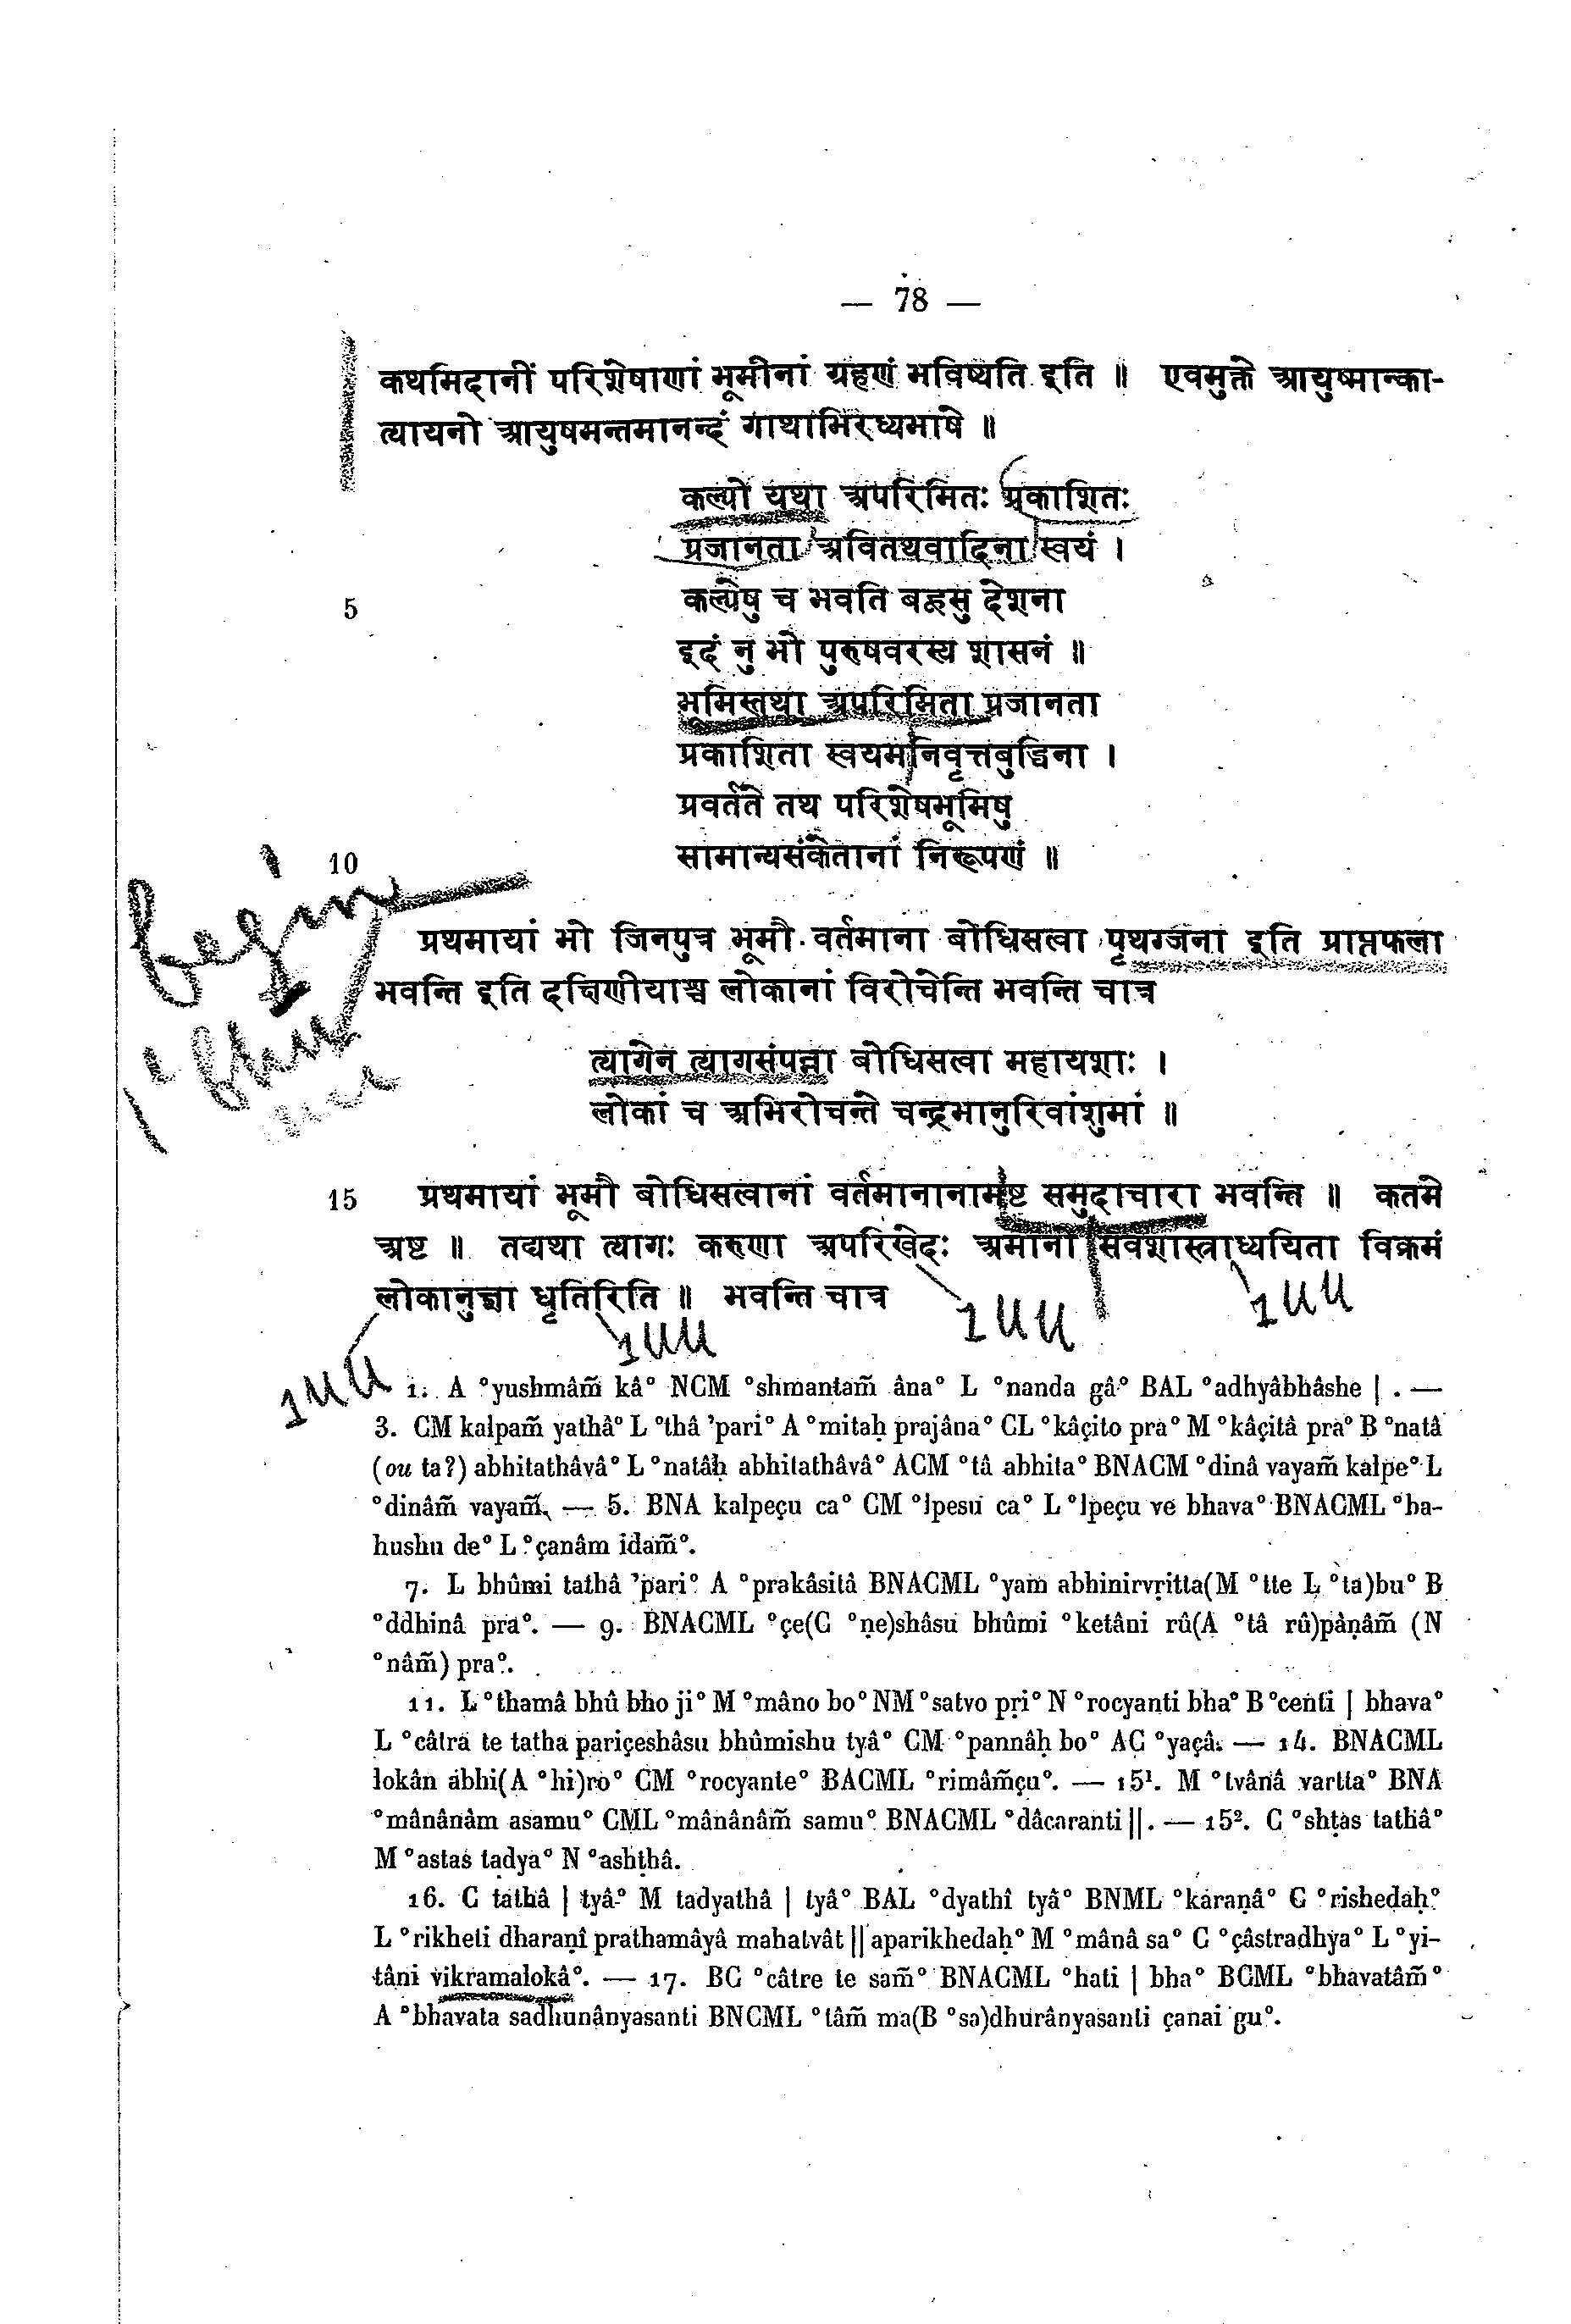 — 78 —
कथमिदानीं परिशेषाणां भूमीनां ग्रहणं भविष्यति इति ॥ एवमुक्ते आयुष्मान्का-
त्यायनो आयुषमन्तमानन्दं गाथाभिरध्यभाषे ॥
कल्पो यथा अपरिमितः प्रकाशितः
प्रजानता अवितथवादिना स्वयं ।
5 कल्पेषु च भवति बहुसु देशना
इदं नु भो पुरुषवरस्य शासनं ॥
भूमिस्तथा अपरिमिता प्रजानता
प्रकाशिता स्वयमनिवृत्तबुद्धिना ।
प्रवर्तते तथ परिशेषभूमिषु
10 सामान्यसंकेतानां निरूपणं ॥
Begin
प्रथमायां भो जिनपुत्र भूमौ वर्तमाना बोधिसत्वा पृथग्जना इति प्राप्तफला
भवन्ति इति दक्षिणीयाश्च लोकानां विरोचेन्ति भवन्ति चात्र
त्यागेन त्यागसंपन्ना बोधिसत्वा महायशाः ।
लोकां च अभिरोचन्ते चन्द्रभानुरिवांशुमां ॥
15 प्रथमायां भूमौ बोधिसत्वानां वर्तमानानामष्ट समुदाचारा भवन्ति ॥ कतमे
अष्ट ॥ तद्यथा त्यागः करुणा अपरिखेदः अमानो सर्वशास्त्राध्ययिता विक्रमं
लोकानुज्ञा धृतिरिति ॥ भवन्ति चात्र
1. A °yushmâm̃ kâ° NCM °shmantam̃ âna° L °nanda gâ° BAL °adhyâbhâshe | . —
3. CM kalpam̃ yathâ° L °thâ 'pari° A °mitaḥ prajâna° CL °kâçito pra° M °kâçitâ pra° B °natâ
(ou ta?) abhitathâvâ° L °natâḥ abhitathâvâ° ACM °tâ abhita° BNACM °dinâ vayam̃ kalpe° L
°dinâm̃ vayam̃. — 5. BNA kalpeçu ca° CM °lpesu ca° L °lpeçu ve bhava° BNACML °ba-
hushu de° L °çanâm idam̃°.
7. L bhûmi tathâ 'pari° A °prakâsitâ BNACML °yam abhinirvṛitta(M °tte L °ta)bu° B
°ddhinâ pra°. — 9. BNACML °çe(C °ṇe)shâsu bhûmi °ketâni rû(A °tâ rû)pâṇâm̃ (N
°nâm̃) pra°.
11. L °thamâ bhû bho ji° M °mâno bo° NM °satvo pṛi° N °rocyanti bha° B °centi | bhava°
L °câtra te tatha pariçeshâsu bhûmishu tyâ° CM °pannâḥ bo° AC °yaçâ. — 14. BNACML
lokân abhi(A °hi)ro° CM °rocyante° BACML °rimâm̃çu°. — 15¹. M °tvânâ vartta° BNA
°mânânâm asamu° CML °mânânâm̃ samu° BNACML °dâcaranti ||. — 15². C °shṭas tathâ°
M °astas tadya° N °ashṭhâ.
16. C tathâ | tyâ° M tadyathâ | tyâ° BAL °dyathî tyâ° BNML °karaṇâ° C °rishedaḥ°
L °rikheti dharaṇî prathamâyâ mahatvât || aparikhedaḥ° M °mânâ sa° C °çâstradhya° L °yi-
tâni vikramalokâ°. — 17. BC °câtre te sam̃° BNACML °hati | bha° BCML °bhavatâm̃°
A °bhavata sadhunânyasanti BNCML °tâm̃ ma(B °sa)dhurânyasanti çanai gu°.